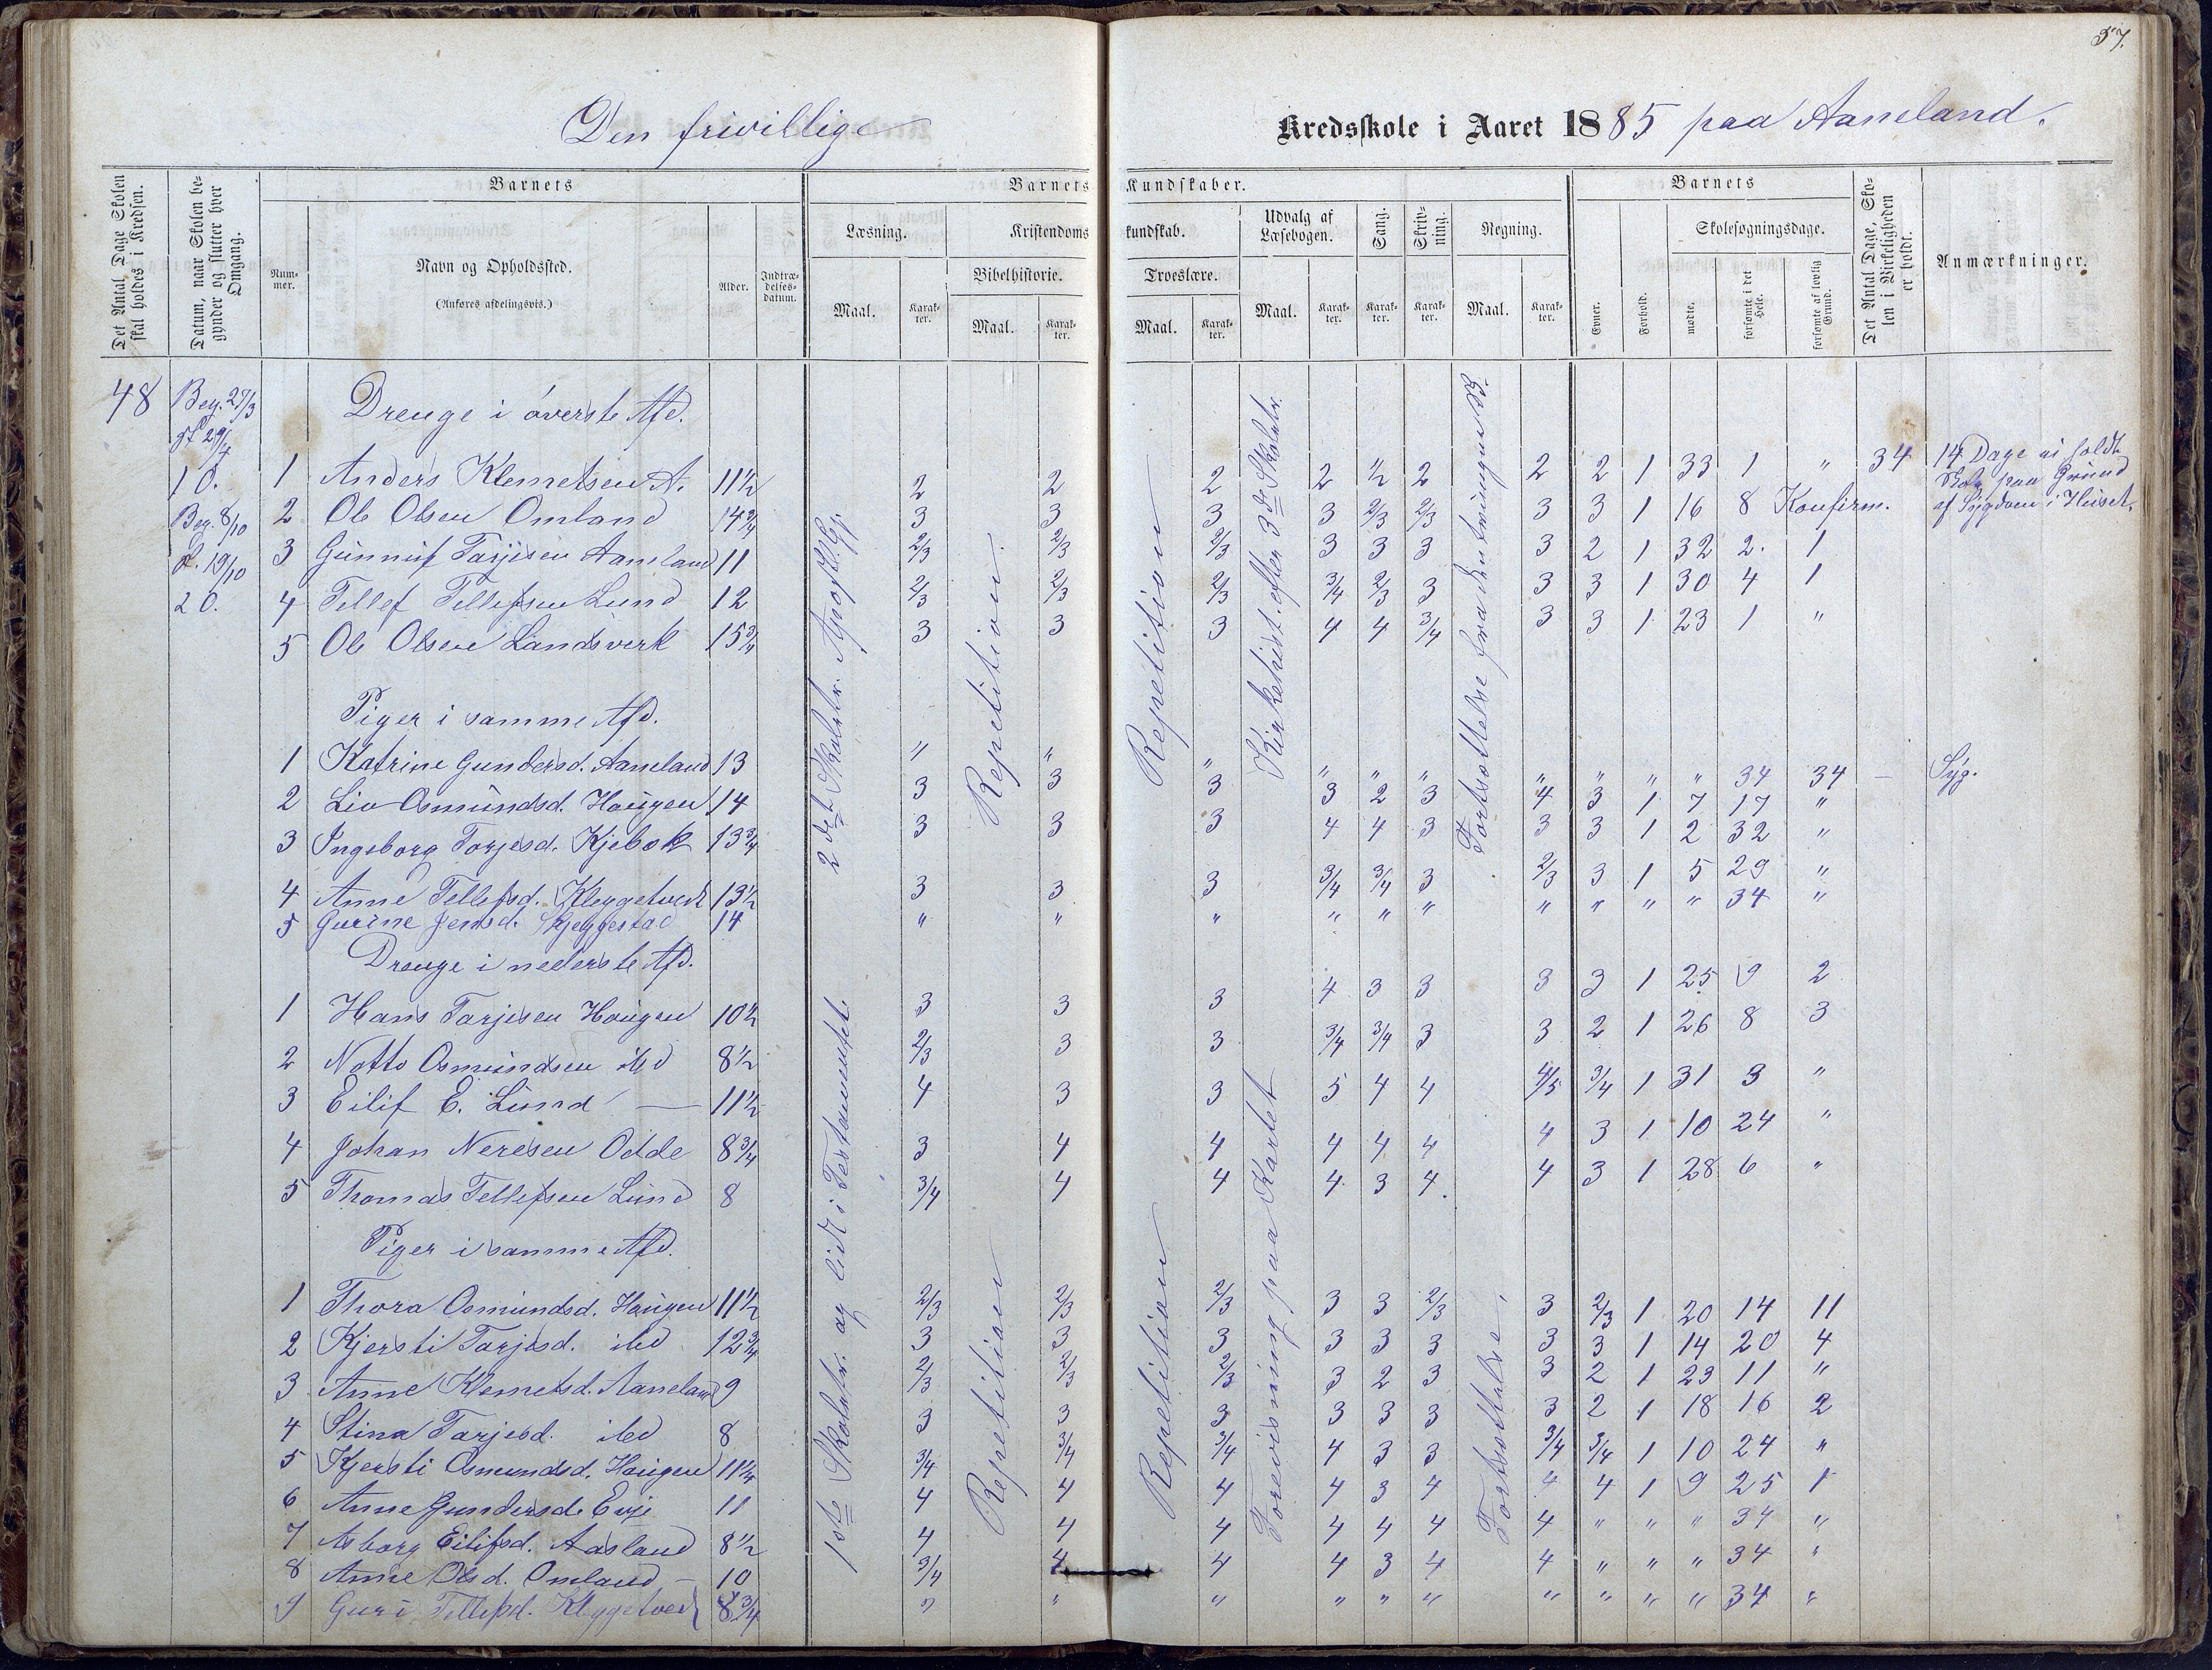 57.
Den frivillige Kredsskole i Aaret 1885 paa Aaneland.
Det Antal Dage Skolen skal holdes i Kredsen.
Datum, naar Skolen begynder og slutter hver Omgang.
Barnets
Nummer.
Navn og Opholdssted.
(Anføres afdelingsvis.)
Alder.
Indtrædelsesdatum.
Barnets Kundskaber.
Læsning.
Maal.
Karakter.
Kristendomskundskab.
Bibelhistorie.
Maal.
Karakter.
Troeslære.
Maal.
Karakter.
Udvalg af Læsebogen.
Maal.
Karakter.
Sang.
Karakter.
Skrivning.
Karakter.
Regning.
Maal.
Karakter.
Barnets
Evner.
Forhold.
Skolesøgningsdage.
mødte.
forsømte i det Hele.
forsømte af lovlig Grund.
Det Antal Dage, Skolen i Virkeligheden er holdt.
Anmærkninger.
48
Beg. 27/3
sl 29/4
1 O.
Beg. 8/10
s. 19/10
2 O.
2det Skoletr. Apostl. Gj.
Repetition.
Repetition
Kirkehist. efter 3de Skoletr.
Drenge i øverste Afd.
1 Anders Klemetsen A. 11½ 2 2 2 2 ½ 2 2 2 1 33 1 " 34 14 Dage ei holdt
Skole paa Grund
af Sygdom i Huset.
2 Ole Olsen Omland 14¾ 3 3 3 3 2/3 2/3 3 3 1 16 8 Konfirm.
3 Gunnuf Tarjesen Aaneland 11 2/3 2/3 2/3 3 3 3 3 2 1 32 2. 1
4 Tellef Tellefsen Lund 12 2/3 2/3 2/3 3/4 2/3 3 3 3 1 30 4 1
5 Ole Olsen Landsverk 15¾ 3 3 3 4 4 3/4 3 3 1 23 1 "
Piger i samme Afd.
1 Katrine Gundersd. Aaneland 13 " " " " " " " " " " 34 34 – Syg.
2 Liv Osmundsd. Haugen 14 3 3 3 3 2 3 4 3 1 7 17 "
3 Ingeborg Torjesd. Kjebek 13¾ 3 3 3 4 4 3 3 3 1 2 32 "
4 Anne Tellefsd. Kleggetvedt 13½ 3 3 3 3/4 3/4 3 2/3 3 1 5 29 "
5 Gurine Jensd. Skjeggestad 14 " " " " " " " " " " 34 "
1ste Skoletr. og lidt i Testamentet.
Repetition
Repetition
Forevisning paa Kartet
Fortsættelse.
Drenge i nederste Afd.
1 Hans Tarjesen Haugen 10½ 3 3 3 4 3 3 3 3 1 25 9 2
2 Notto Osmundsen ibd 8½ 2/3 3 3 3/4 3/4 3 3 2 1 26 8 3
3 Eilif E. Lund — 11½ 4 3 3 5 4 4 4/5 3/4 1 31 3 "
4 Johan Neresen Odde 8¾ 3 4 4 4 4 4 4 3 1 10 24 "
5 Thomas Tellefsen Lund 8 3/4 4 4 4 3 4. 4 3 1 28 6 "
Piger i samme Afd.
1 Thora Osmundsd. Haugen 11½ 2/3 2/3 2/3 3 3 2/3 3 2/3 1 20 14 11
2 Kjersti Tarjesd. ibd 12¾ 3 3 3 3 3 3 3 3 1 14 20 4
3 Anne Klemetsd. Aaneland 9 2/3 2/3 2/3 3 2 3 3 2 1 23 11 "
4 Stina Tarjesd. ibd 8 3 3 3 3 3 3 3 2 1 18 16 2
5 Kjersti Osmundsd. Haugen 11¼ 3/4 3/4 3/4 4 3 3 3/4 3/4 1 10 24 "
6 Anne Gundersd. Evje 11 4 4 4 4 3 4 4 4 1 9 25 1
7 Asborg Eilifsd. Aasland 8½ 4 4 4 4 4 4 4 " " " 34 "
8 Anne Olsd. Omland – 10 3/4 4 4 4 3 4 4 " " " 34 "
9 Guri Tellefsd. Kleggetvedt 8¾ " " " " " " " " " " 34 "